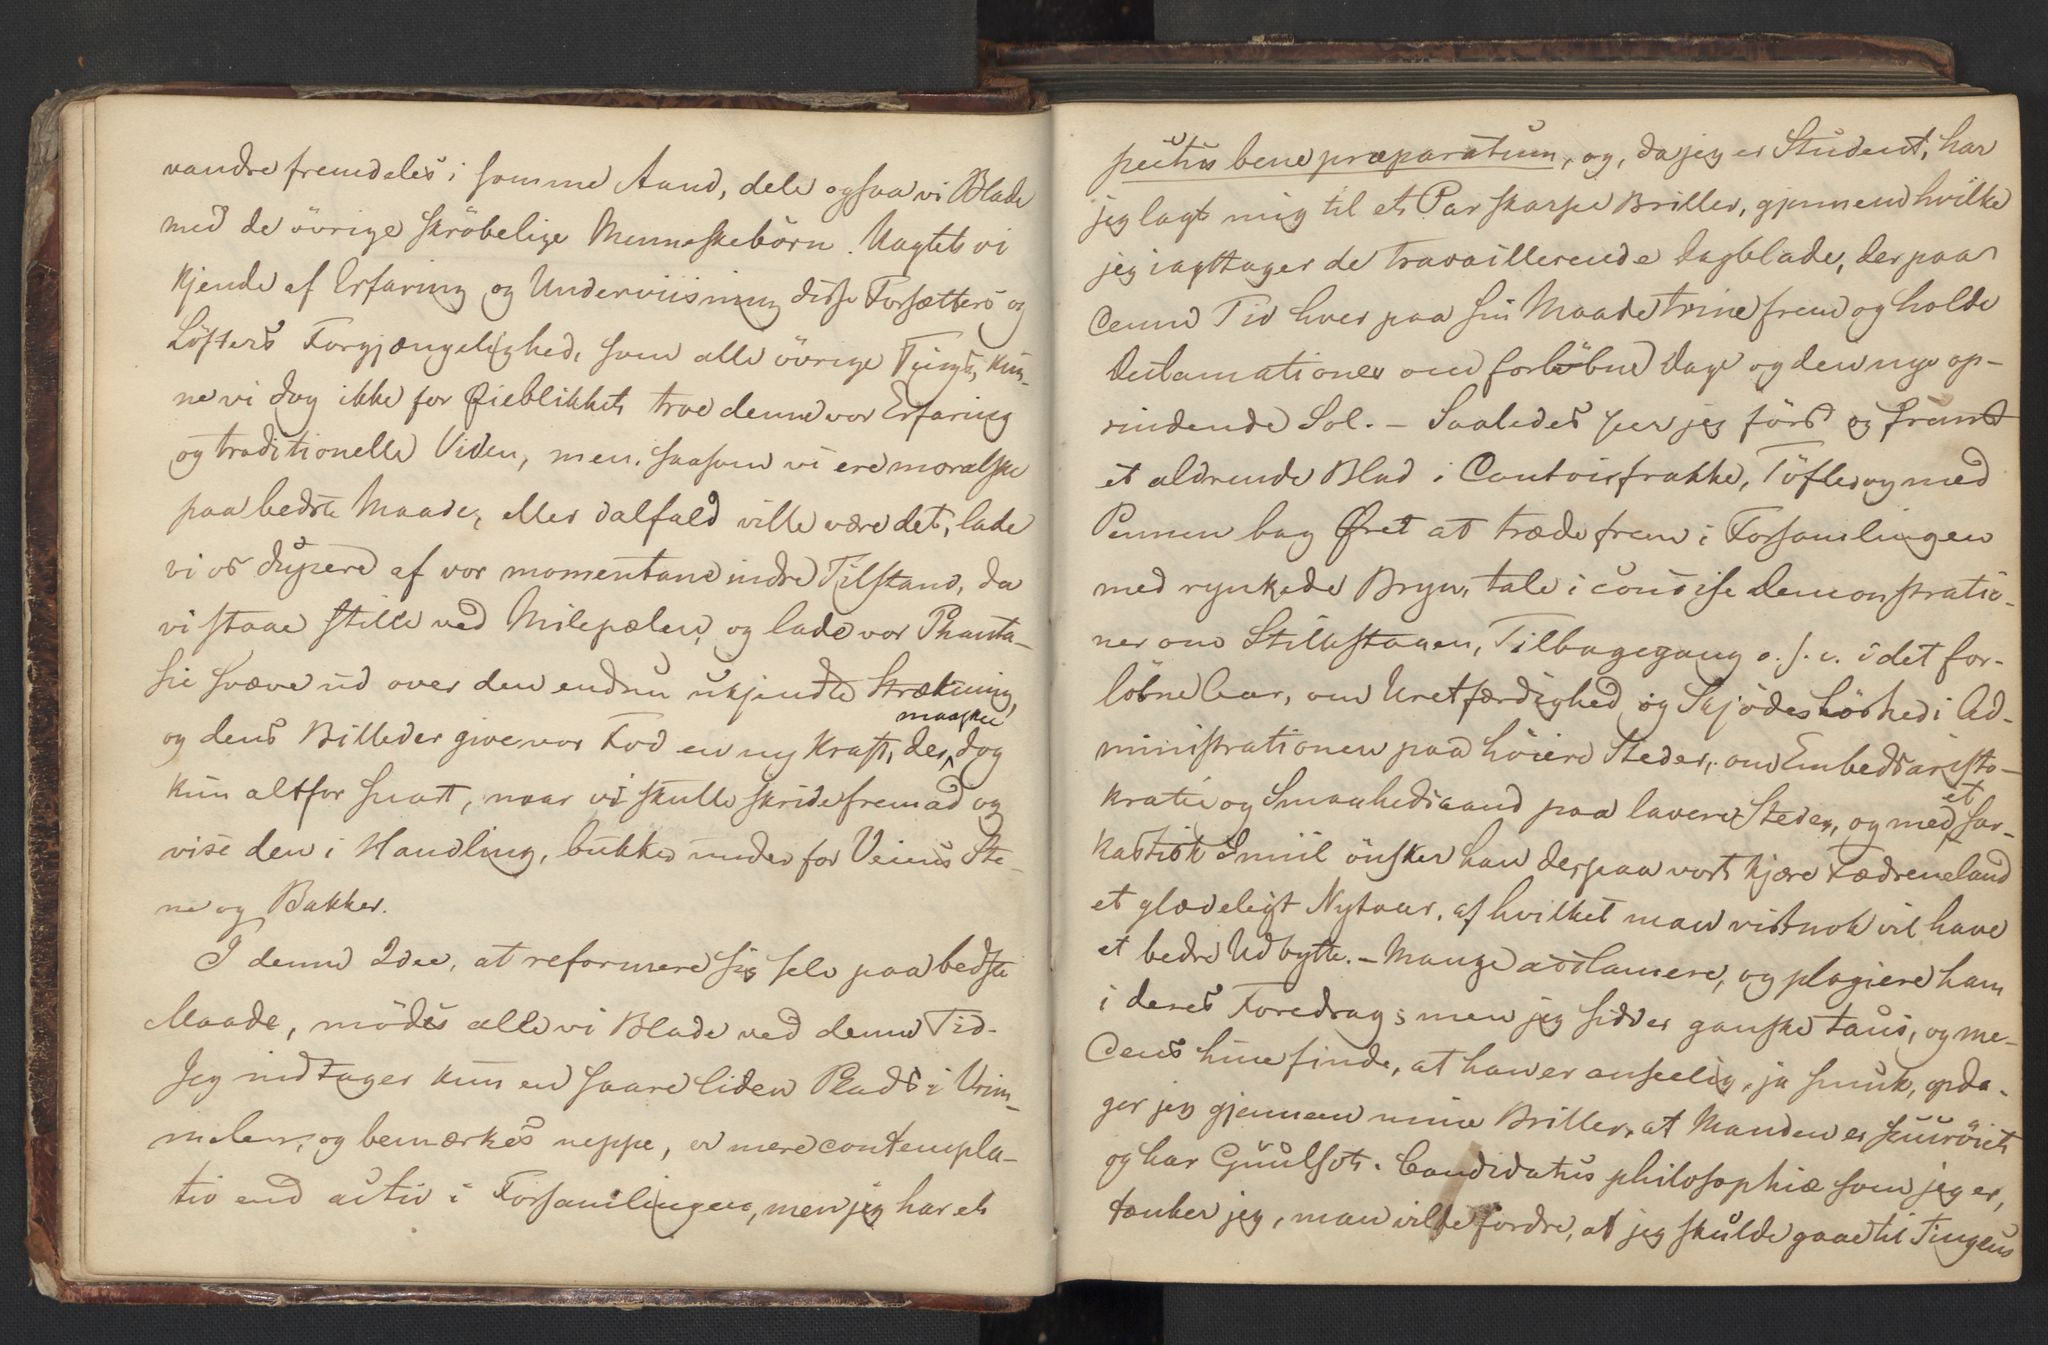 vandre fremdeles i samme Aand, dele ogsaa vi Blade
med de övrige skröbelige Menneskebörn. Uagtet vi
kjende af Erfaring og Underviisning disse Forsætters og
Löfters Forgjængelighed, som alle övrige Tings, kun-
ne vi dog ikke for Øieblikket troe denne vor Erfaring
og traditionelle Viden, men, saasom vi ere moralske
paa bedste Maade, eller ialfald ville være det, lade
vi os dupere af vor momentane indre Tilstand, da
vi staae stille ved Milepælen, og lade vor Phanta-
sie svæve ud over den endnu ukjendte Strækning,
og dens Billeder give vor Fod en ny Kraft, der maaskee dog
kun altfor snart, naar vi skulle skride fremad og
vise den i Handling, bukker under for Veiens Ste-
ne og Bakker.
I denne Idee, at reformere sig selv paa bedste
Maade, mödes alle vi Blade ved denne Tid.
Jeg indtager kun en saare liden Plads i Vrim-
melen, og bemærkes neppe, er mere contempla-
tiv end activ i Forsamlingen, men jeg har et
pectus bene præparatum, og, da jeg er Student, har
jeg lagt mig til et Par skarpe Briller, gjennem hvilke
jeg iagttager de travaillerende Dagblade, der paa
denne Tid hver paa sin Maade trine frem og holde
Declamationer om forløbne Dage og den nye op-
rindende Sol. – Saaledes seer jeg först og fremst
et aldrende Blad i Contoirfrakke, Töfler og med
Pennen bag Øret at træde frem i Forsamlingen
med rynkede Bryn, tale i concise Demonstratio-
ner om Stilstaaen, Tilbagegang o. s. v. i det for-
löbne Aar, om Uretfærdighed og Skjödeslöshed i Ad-
ministrationen paa höiere Steder, om Embedsaristo-
kratie og Smaahedsaand paa lavere Steder, og med et sar-
kastisk Smiil önsker han derpaa vort kjære Fædreneland
et glædeligt Nytaar, af hvilket man vistnok vil have
et bedre Udbytte. – Mange acclamere, og plagiere ham
i deres Foredrag; men jeg sidder ganske taus, og me-
dens hine finde, at han er anseelig, ja smuk, opda-
ger jeg gjennem mine Briller, at Manden er suurøiet
og har Guulsot. Candidatus philosophiæ som jeg er,
tænker jeg, man vilde fordre, at jeg skulde gaae til Tingens